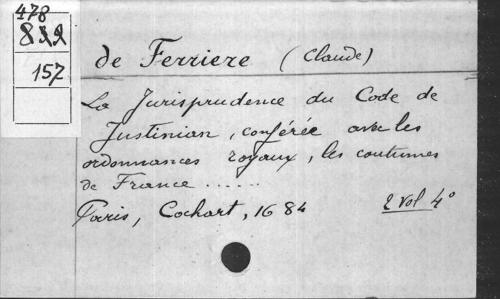 478
822
157
de Ferriere (Claude)
La Jurisprudence du Code de
Justinian, conférée avec les
ordonnances royaux, les coutumes
de France ......
Paris, Cochart, 1684 2 vol 4°